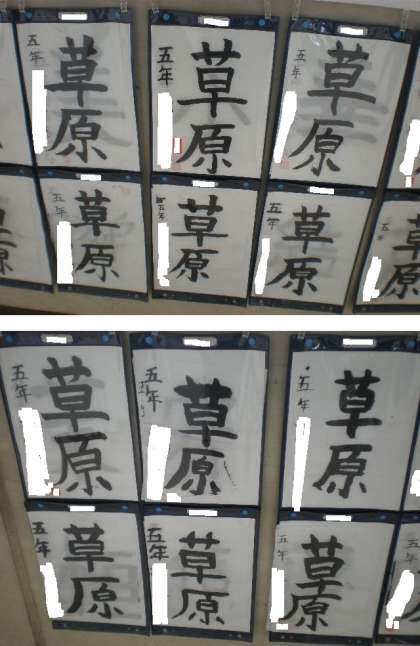 五年 草原
五年 草原
五年 草原
五年 草原
五年 草原
五年 草原
五年 草原
五年 草原
五年 草原
五年 草原
五年 草原
五年 草原